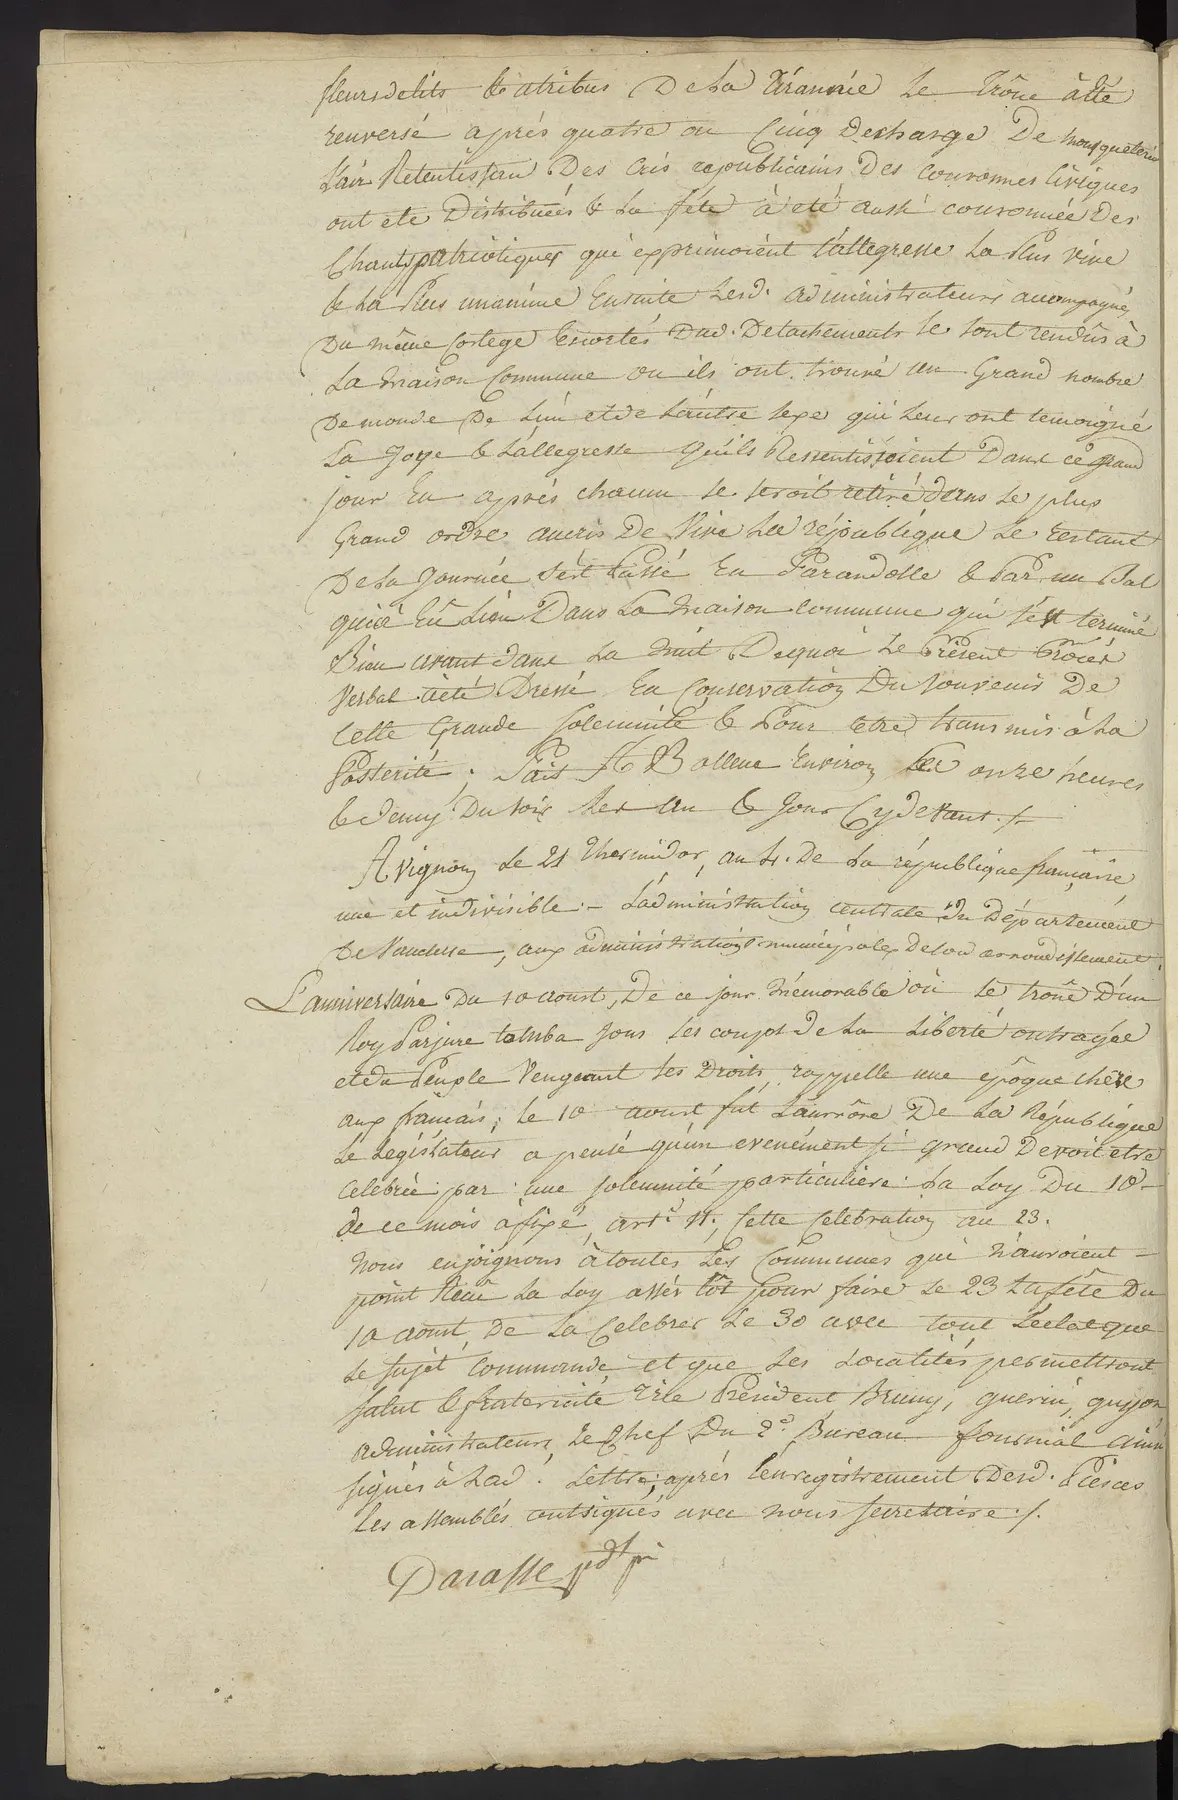 fleurs de lits & atribus De la Tirannie Le Trône à été
renversé aprés quatre ou Cinq Decharge De mousqueterie
L'air Retentissan Des Cris republicains Des couronnes Civiques
ont été Distribuées & La fête à eté aussi couronnée Des
Chants patriotiques qui exprimoient l'allegresse La Plus vive
& La Plus unanime Ensuite Lesd. administrateurs accompagnés
Du même Cortege Escortés Dud. Detachements Se sont rendûs à
La maison Commune ou ils ont trouvé un Grand nombre
De monde De L'un et de L'autre sexe qui Leur ont temoigné
La Joye & L'allegresse qu'ils Ressentissoient Dans ce grand
jour En aprés chacun Se seroit retiré dans le plus
Grand ordre aucris De Vive La république Le restant
De la Journée s'est Passé En Farandolle & Par un Bal
qui à Eû Lieu Dans La maison commune qui s'est terminé
Bien avant dans La Nuit Dequoi Le Présent Procés
Verbal àété Dressé En Conservation Du Souvenir De
Cette Grande solemnité & Pour être transmis à La
Posterité. Fait A Bollene Environ Les onze heures
& Demy Du soir Les an & Jour Cy devant ./.
Avignon Le 21 Thermidor, an 4. De La république française
une et indivisible :- L'administration centrale du Département
De Vaucluse, aux administrations municipales De son arrondissement.
L'anniversaire Du 10 aoust, De ce jour mémorable où Le trône D'un
Roy Parjure tomba sous Les coups de La Liberté outragée
et du Peuple Vengeant ses Droits, rappelle une époque chère
aux français ; le 10 aoust fut L'aurore De La République
Le Législateur a pensé qu'un evenément si grand Devoit etre
Celebrée par une solemnité particuliere. La Loy Du 10
de ce mois à fixé, art.e 4. Cette Celebration au 23.
Nous enjoignons à toutes Les Communes qui n'auroient
point Recû La Loy assés tôt pour faire Le 23 La fête Du
10 aoust, De La Celebrer Le 30 avec tout L'éclat que
Le sujet Commande et que Les Localités permettront
Salut & fraternité Président Bruny, guerin, guyon
administrateurs, Le Chef Du 2.e Bureau fournial ainsi
signés à Lad. Lettre ; aprés l'enregistrement Desd. Piéces
Les assemblés ont signés avec nous secretaire ./.
Darasse pdt